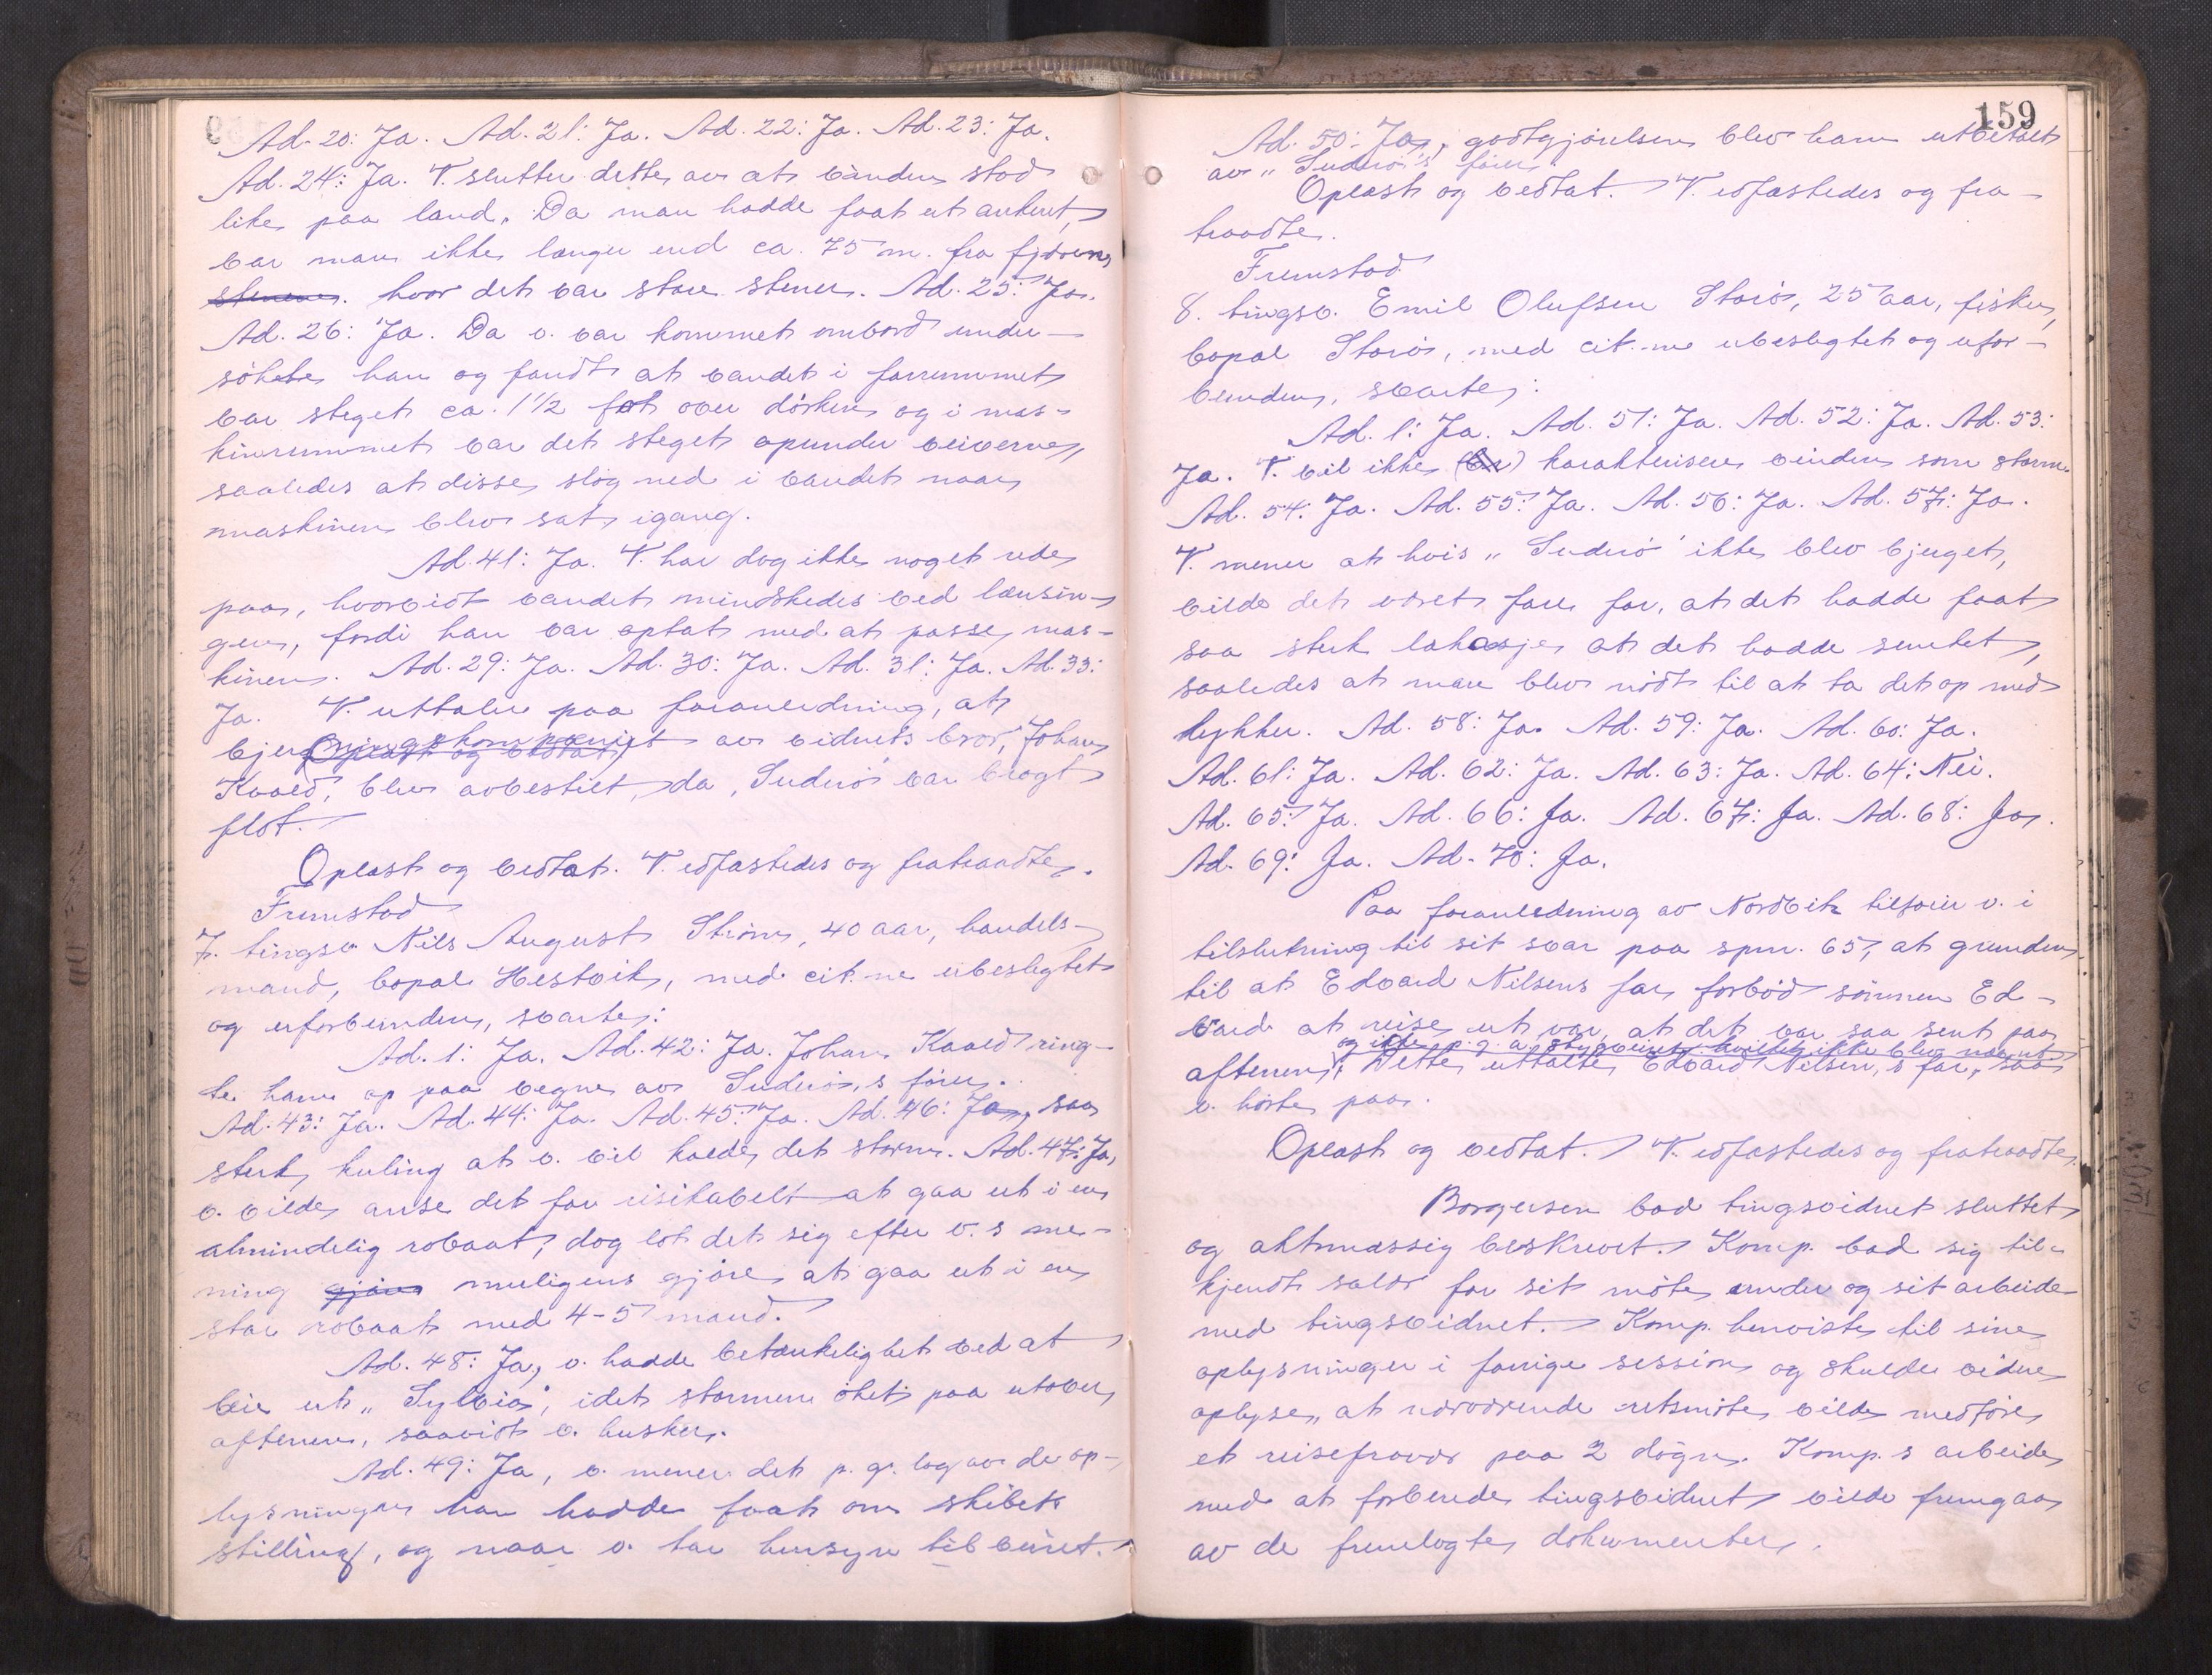 Ad. 20: Ja. Ad. 21: Ja. Ad. 22: Ja. Ad. 23: Ja.
Ad. 24: Ja. V. slutter dette av at vinden stod
like paa land. Da man hadde faat ut ankeret,
var man ikke længer end ca. 75 m. fra fjæren,
stenene. hvor det var store stener. Ad. 25: Ja.
Ad. 26: Ja. Da v. var kommet ombord under-
søkte han og fandt at vandet i forrummet
var steget ca. 1 1/2 fot over dørken og i mas-
kinrummet var det steget opunder veiverne,
saaledes at disse slog ned i vandet naar
maskinen blev sat igang.
Ad. 41: Ja. V. har dog ikke noget rede
paa, hvorvidt vandet mindskedes ved lænsin-
gen, fordi han var optat med at passe mas-
kinen. Ad. 29: Ja. Ad. 30: Ja. Ad. 31: Ja. Ad. 33:
Ja. V. uttaler paa foranledning, at
bjergningskompaniet av vidnets bror, Johan
Kvaed, blev avbestilt, da „Suderø" var bragt
flot.
Oplæst og vedtat. V. edfæstedes og fratraadte.
Fremstod
7. tingsv. Nils August Strøm, 40 aar, handels-
mand, bopæl Hestvik, med cit.ne ubeslegtet
og uforbunden, svarte:
Ad. 1: Ja. Ad. 42: Ja. Johan Kvaed ring-
te ham op paa vegne av Suderø,s fører.
Ad. 43: Ja. Ad. 44: Ja. Ad. 45: Ja. Ad. 46: Ja, saa
sterk kuling at v. vil kalde det storm. Ad. 47: Ja,
v. vilde anse det for risikabelt at gaa ut i en
almindelig robaat, dog lot det sig efter v.s me-
ning gjøre muligens gjøre at gaa ut i en
stor robaat med 4-5 mand.
Ad. 48: Ja, v. hadde betænkelighet ved at
leie ut „Sylvia", idet stormen øket paa utover
aftenen, saavidt v. husker.
Ad. 49: Ja, v. mener det p. gr. lag av de op-
lysninger han hadde faat om skibets
stilling, og naar v. tar hensyn til veiret.
159
Ad. 50: Ja, godtgjørelsen blev ham utbetalt
av „Suderø"s fører.
Oplæst og vedtat. V. edfæstedes og fra-
traadte.
Fremstod
8. tingsv. Emil Olufsen Storø, 25 aar, fisker,
bopæl Storø, med cit.ne ubeslegtet og ufor-
bunden, svarte:
Ad. 1: Ja. Ad. 51: Ja. Ad. 52: Ja. Ad. 53:
Ja. V. vil ikke karakterisere vinden som storm.
Ad. 54: Ja. Ad. 55: Ja. Ad. 56: Ja. Ad. 57: Ja.
V. mener at hvis „Suderø" ikke blev bjerget,
vilde det været fare for, at det hadde faat
saa sterk lekasje at det hadde senket,
saaledes at man blev nødt til at ta det op med
dykker. Ad. 58: Ja. Ad. 59: Ja. Ad. 60: Ja.
Ad. 61: Ja. Ad. 62: Ja. Ad. 63: Ja. Ad. 64: Nei.
Ad. 65: Ja. Ad. 66: Ja. Ad. 67: Ja. Ad. 68: Ja.
Ad. 69: Ja. Ad. 70: Ja.
Paa foranledning av Nordvik tilføier v. i
tilslutning til sit svar paa spm. 65, at grunden
til at Edvard Nilsens far forbød sønnen Ed-
vard at reise ut var, at det var saa sent paa
og ikke p. g. a. styggveiret. hvilket ikke blev nævnt
aftenen. Dette uttalte Edvard Nilsen,s far, saa
v. hørte paa.
Oplæst og vedtat. V. edfæstedes og fratraadte.
Borgersen bad tingsvidnet sluttet
og aktmæssig beskrevet. Komp. bad sig til-
kjendt salær for sit møte under og sit arbeide
med tingsvidnet. Komp. henviste til sine
oplysninger i forrige session og skulde videre
oplyse, at nærværende retsmøte vilde medføre
et reisefravær paa 2 døgn. Komp.s arbeide
med at forberede tingsvidnet vilde fremgaa
av de fremlagte dokumenter.